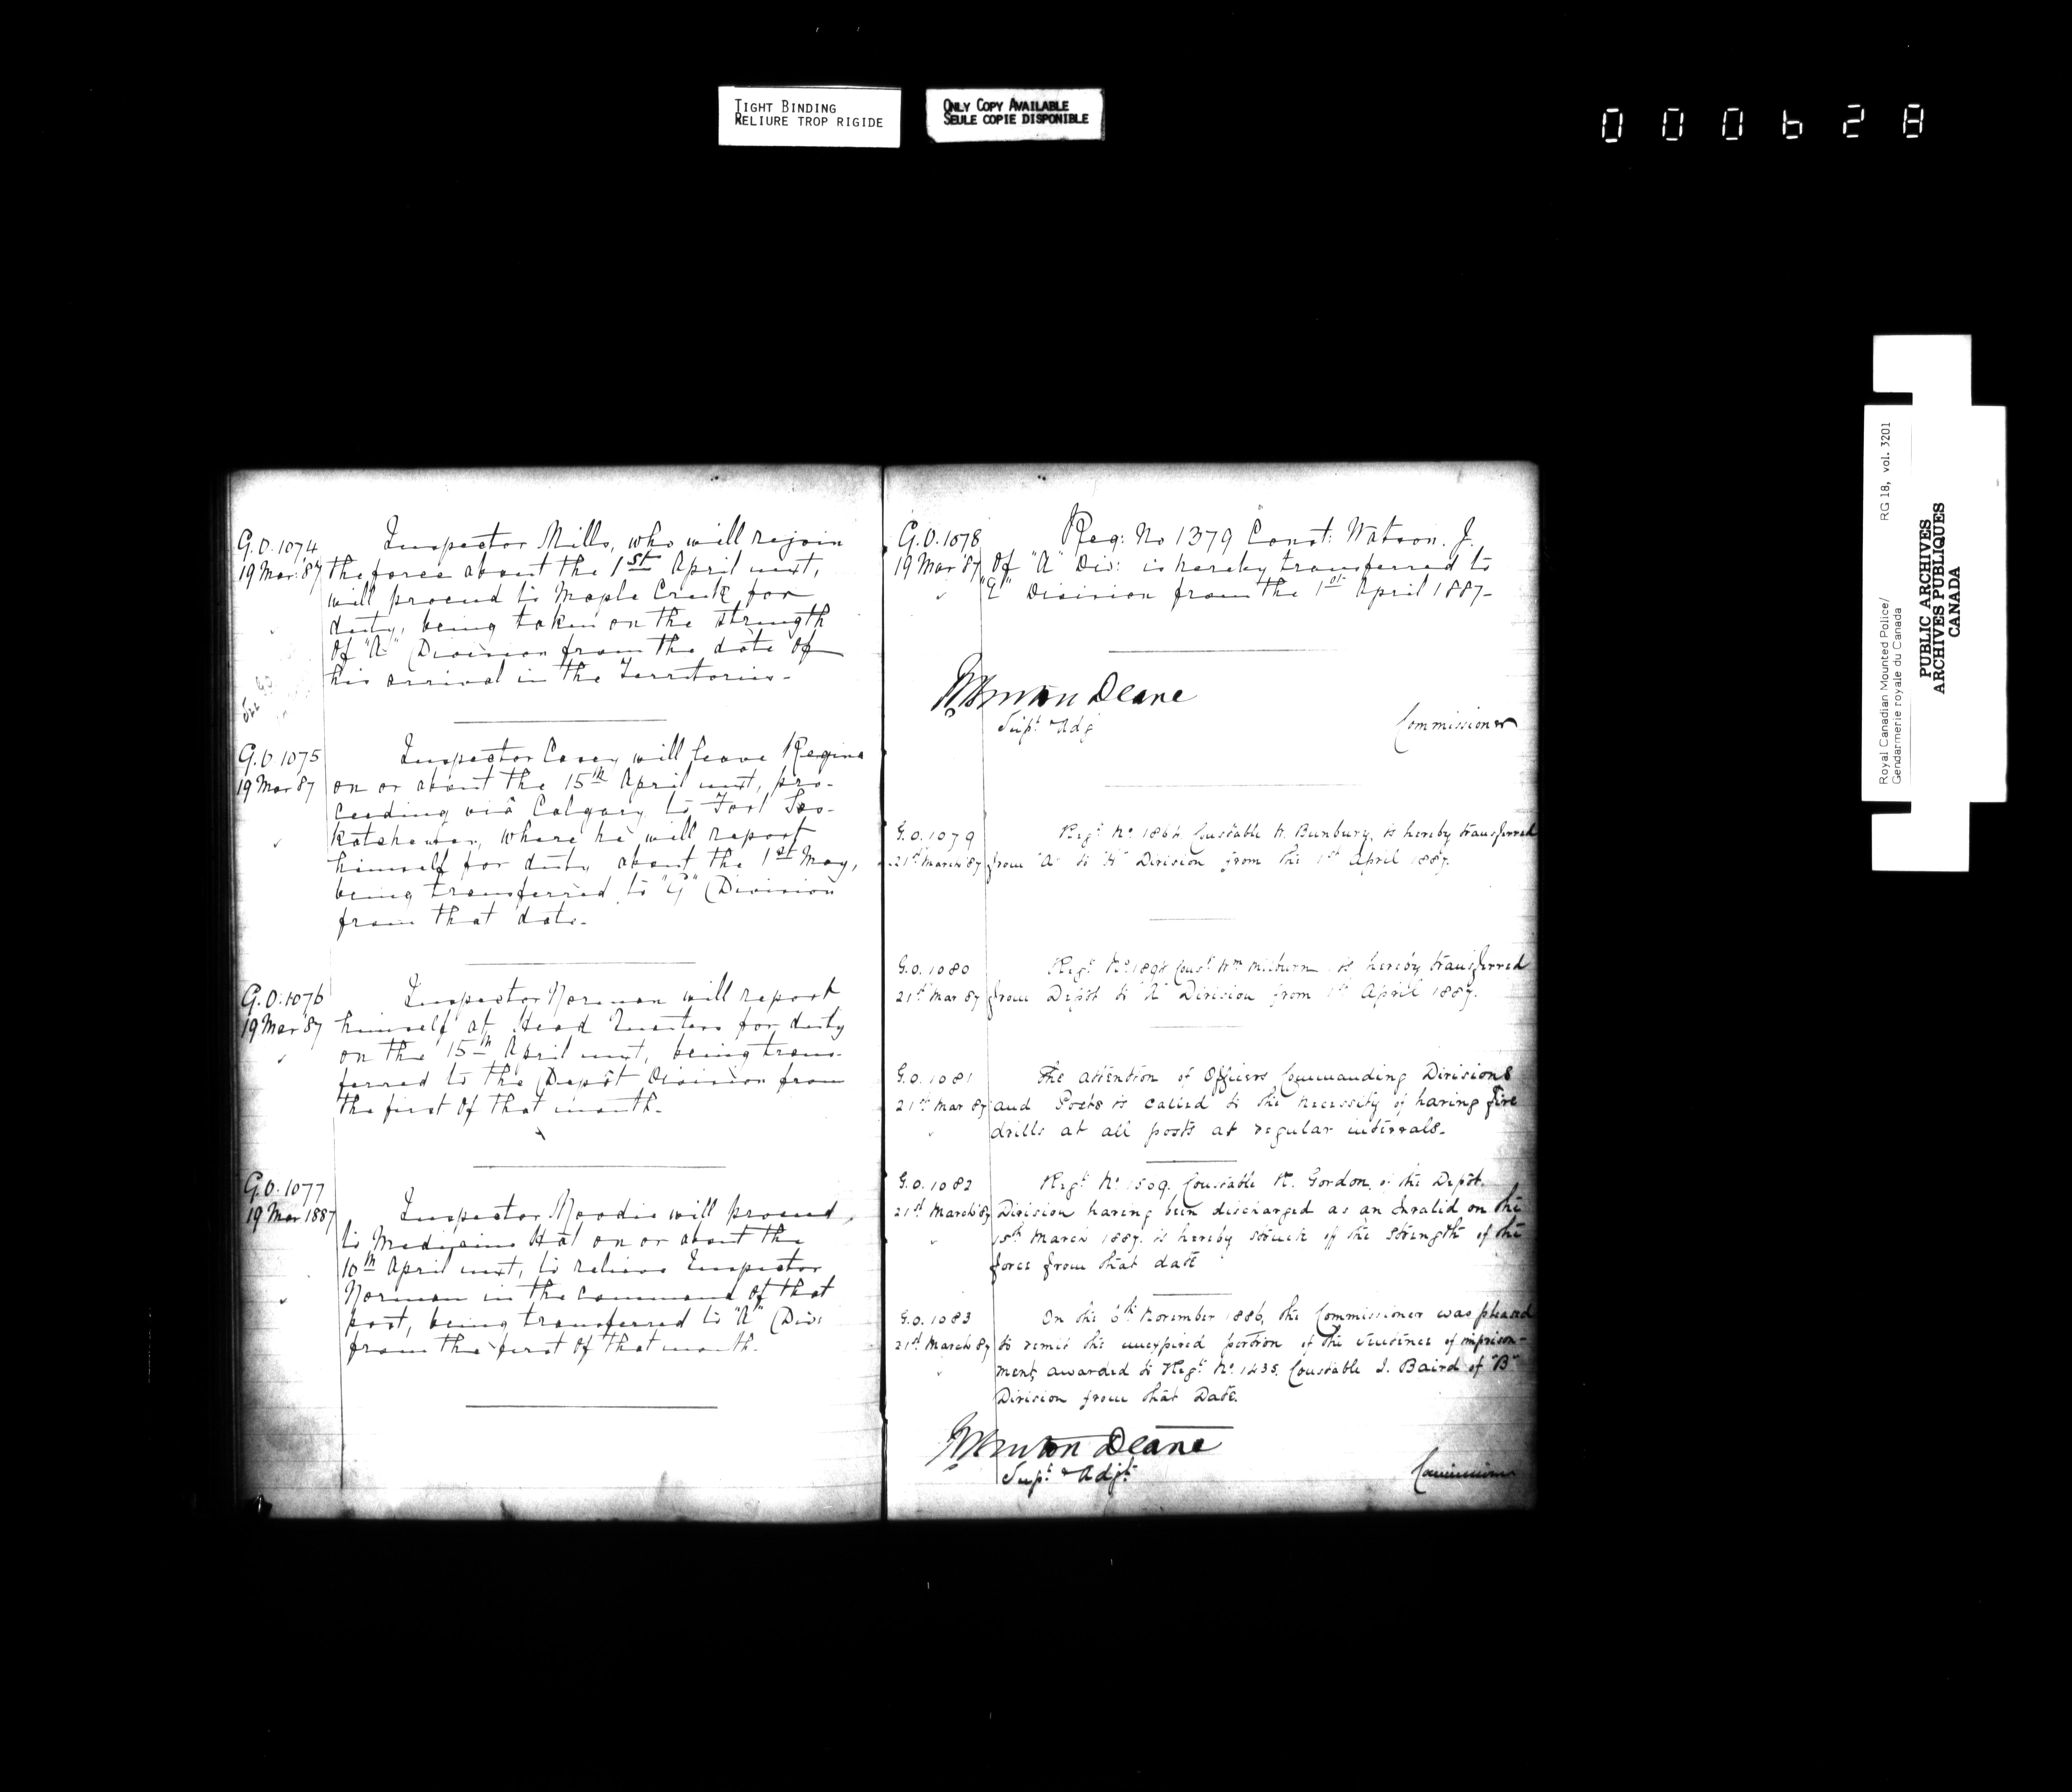 TIGHT BINDING
RELIURE TROP RIGIDE
ONLY COPY AVAILABLE
SEULE COPIE DISPONIBLE
000628
Royal Canadian Mounted Police/
Gendarmerie royale du Canada
RG 18, vol. 3201
PUBLIC ARCHIVES
ARCHIVES PUBLIQUES
CANADA
G.O. 1074
19 Mar. 87
Inspector Mills, who will rejoin
the force about the 1st April next,
will proceed to Maple Creek for
duty, being taken on the strength
of "A" Division from the date of
his arrival in the Territories.
G.O 1075
19 Mar 87
Inspector Casey will leave Regina
on or about the 15th April next, pro-
ceeding viâ Calgary to Fort Sas-
katchewan, where he will report
himself for duty about the 1st May,
being transferred to "G" Division
from that date.
G.O. 1076
19 Mar 87
Inspector Norman will report
himself at Head Quarters for duty
on the 15th April next, being trans-
ferred to the Depôt Division from
the first of that month.
G.O. 1077
19 Mar 1887
Inspector Moodie will proceed
to Medicine Hat on or about the
10th April next, to relieve Inspector
Norman in the command of that
post, being transferred to "A" Div:
from the first of that month.
G.O. 1078
19 Mar 87
Reg: No 1379 Const: Watson. J.
Of "A" Div: is hereby transferred to
Division from the 1st April 1887-
Deane
Supt & Adj
Commissioner
G.O. 1079
21st March 87
Regt No 1864 Constable Bunbury, is hereby transferred
from "A" to "H" Division from the 1st April 1887.
G.O. 1080
21st Mar 87
Regt No Const Wm Milburn is hereby transferred
from Depôt to "A" Division from 1st April 1887.
G.O. 1081
21st Mar 87
The attention of Officers Commanding Divisions
and Posts is called to the necessity of having fire
drills at all posts at regular intervals.
G.O. 1082
21st March 87
Regt No 1509. Constable Gordon, of the Depôt.
Division having been discharged as an Invalid on the
15th March 1887. is hereby struck of the strength of the
force from that date
G.O. 1083
21st March 87
On the 6th November 1886, the Commissioner was pleased
to remit the unexpired portion of the sentence of imprison-
ment awarded to Regt No 1435. Constable J. Baird of "B"
Division from that Date.
Deane
Supt & Adjt
Commissioner